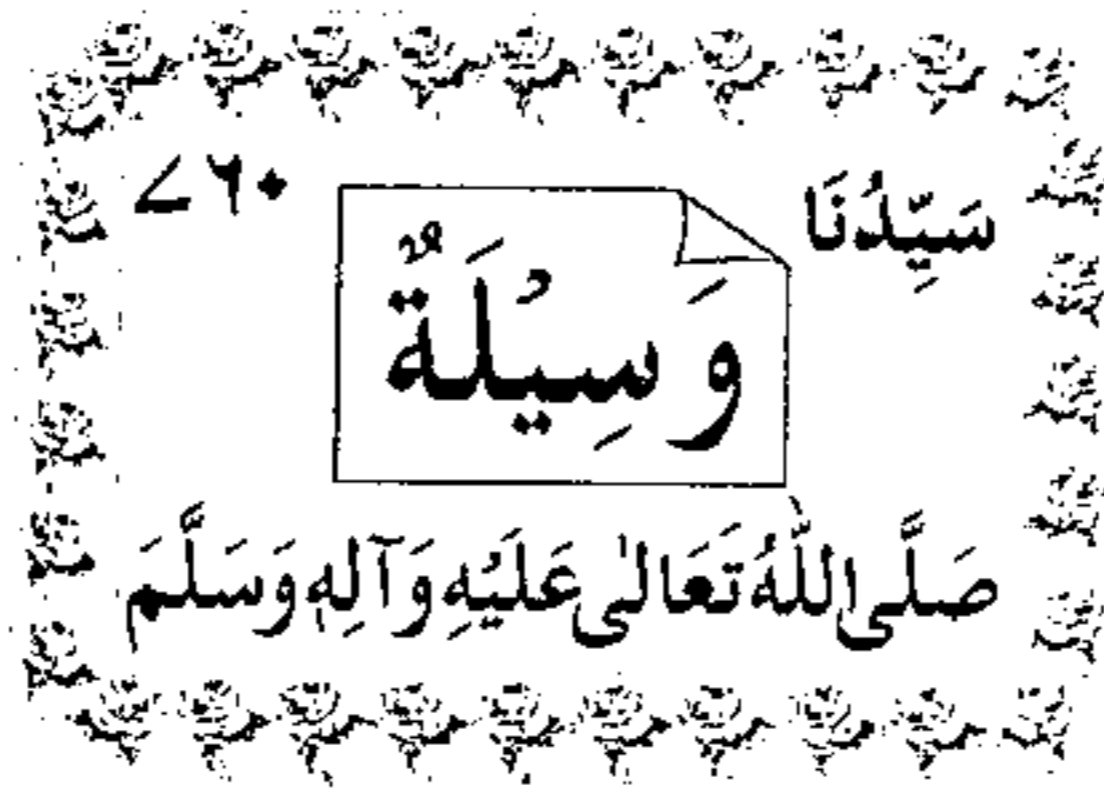 سَيِّدُنَا ۷۶۰
وَسِيْلَةٌ
صَلَّی اللّٰهُ تَعَالٰی عَلَيْهِ وَآلِهٖ وَسَلَّمَ